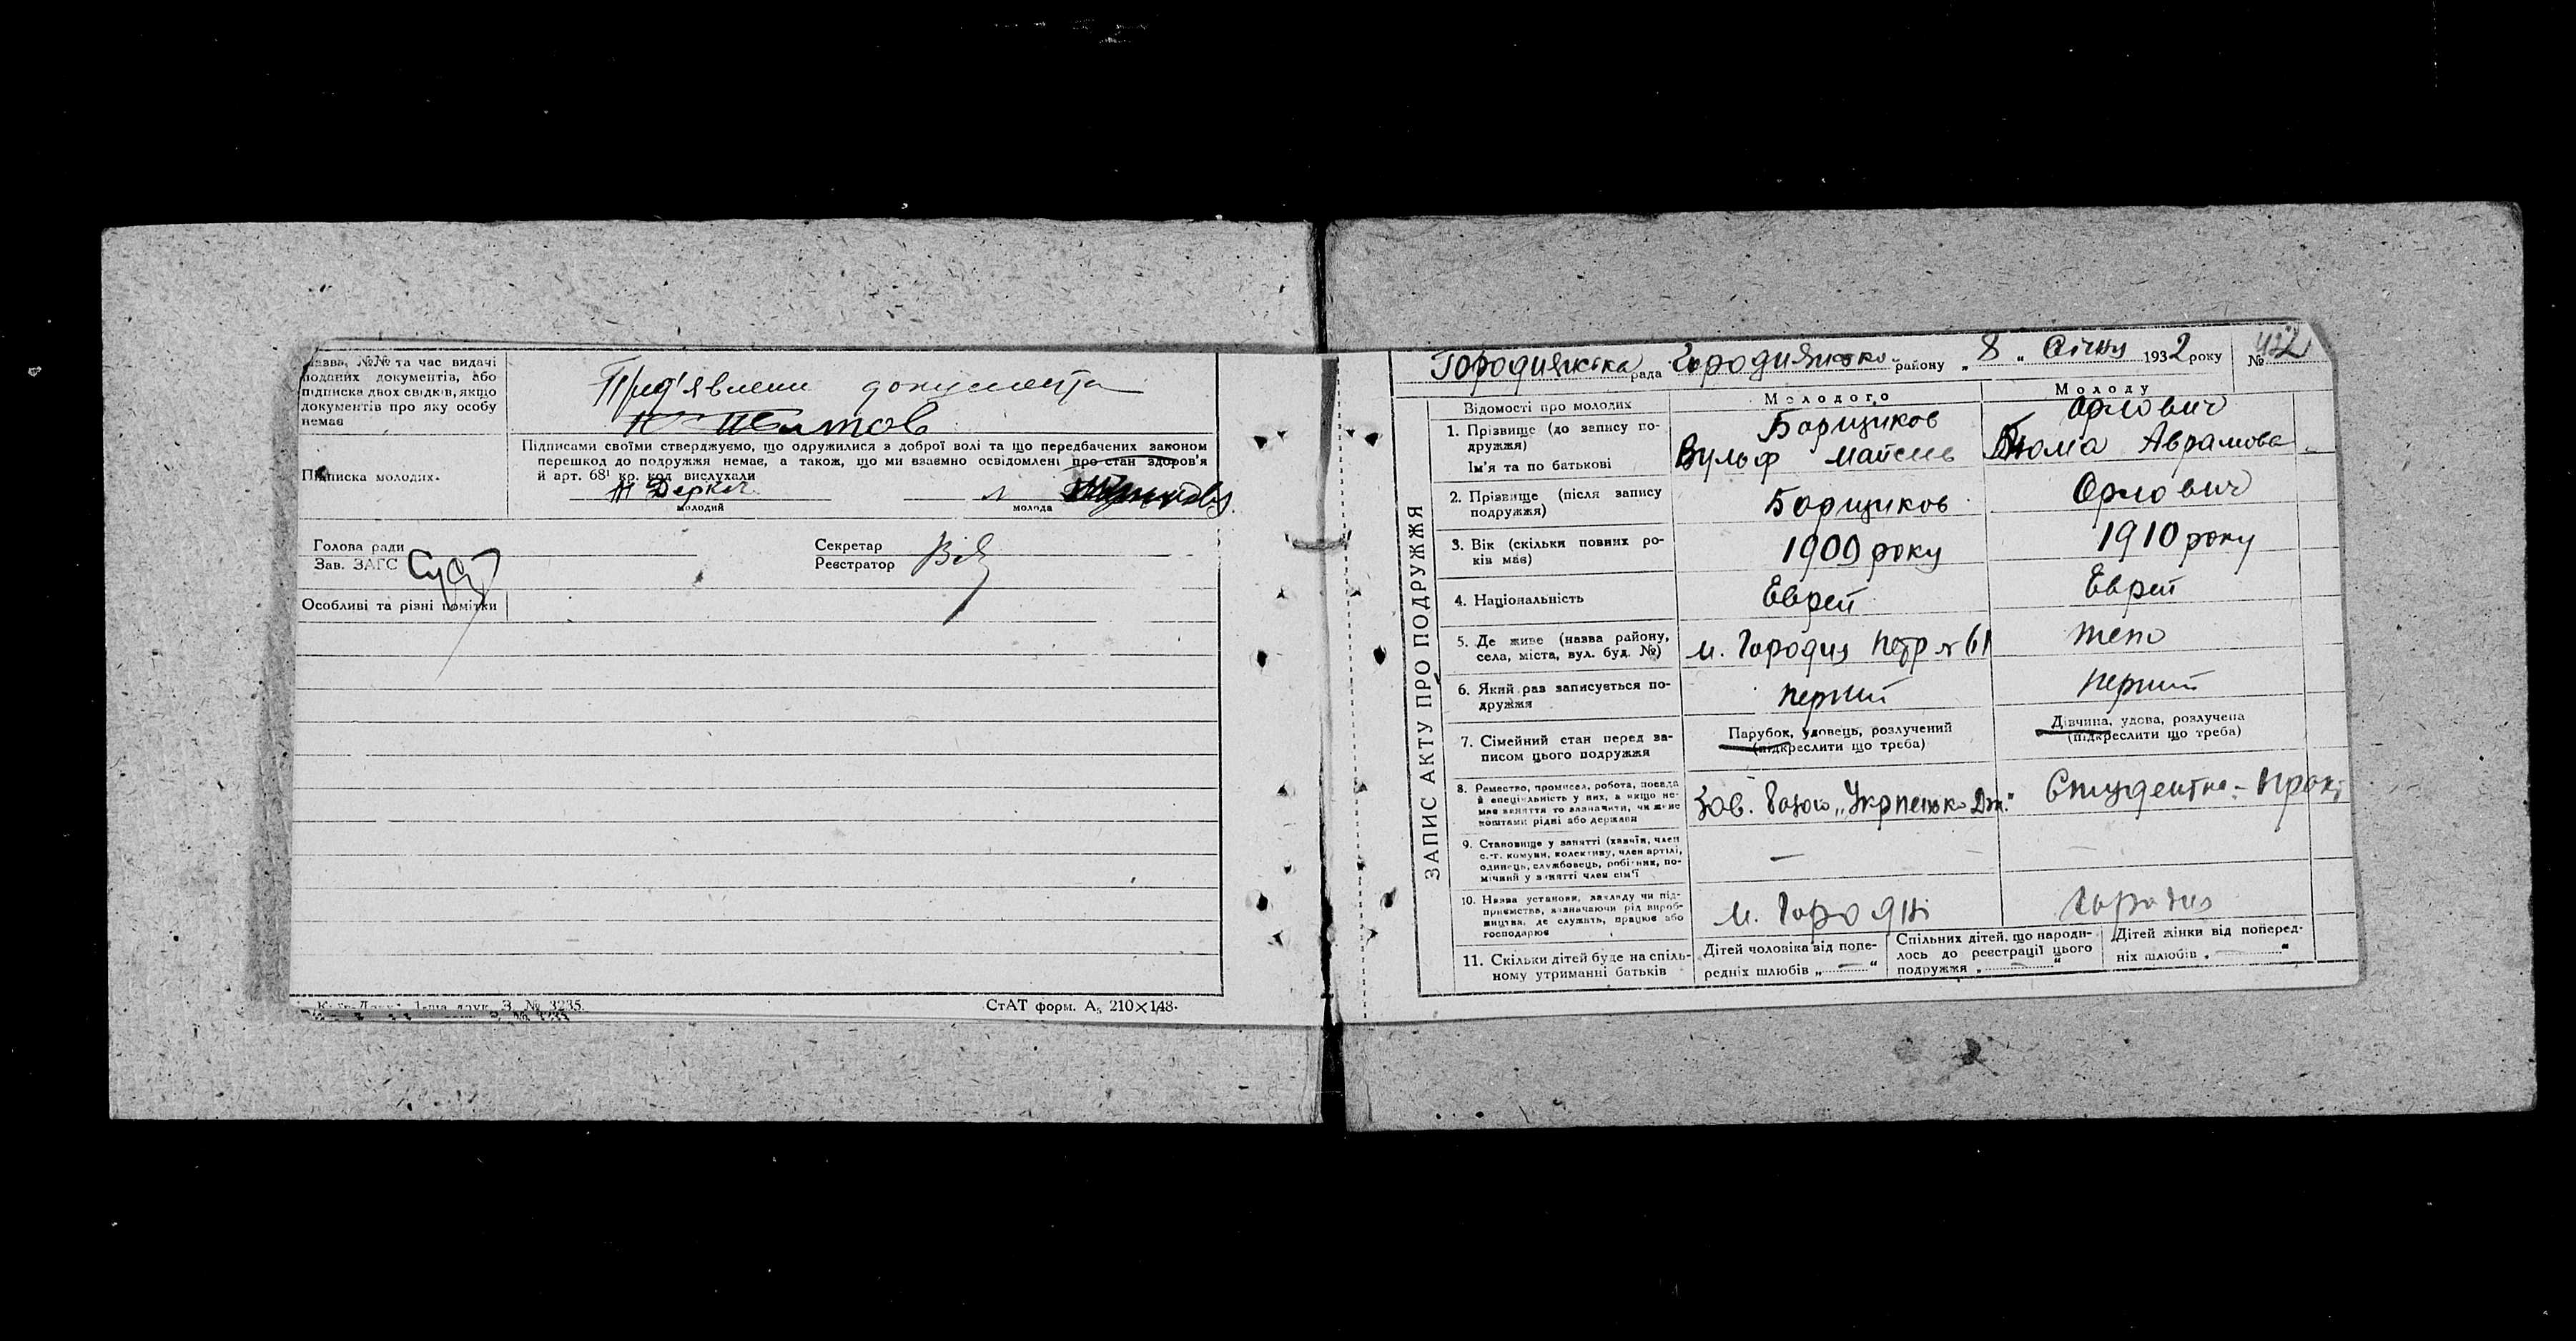 Назва, №№ та час видачі
поданих документів, або
підписка двох свідків, якщо
документів про яку особу
немає
Пред'явлени документа
Підписка молодих.
Підписами своїми стверджуємо, що одружилися з доброї волі та що передбачених законом
перешкод до подружжя немає, а також, що ми взаємно освідомлені про стан здоров'я
й арт. 68¹ кр. код. вислухали
Н Деркач
молодий
молода
Голова ради
Зав. ЗАГС
Секретар
Реєстратор
Особливі та різні помітки
З. № 3235.
СтАТ форм. А₅ 210×148.
Городнянська рада Городнянсько району „ 8 „ Січня 1932 року №
ЗАПИС АКТУ ПРО ПОДРУЖЖЯ
Відомості про молодих
Молодого
Молоду
1. Прізвище (до запису по-
дружжя)
Ім'я та по батькові
Борщиков
Вульф
Орлович
Аврамова
2. Прізвище (після запису
подружжя)
Борщиков
Орлович
3. Вік (скільки повних ро-
ків має)
1909 року
1910 року
4. Національність
Еврей
Еврей
5. Де живе (назва району,
села, міста, вул. буд. №)
м. Городня Петр № 61
тето
6. Який раз записується по-
дружжя
перший
перший
7. Сімейний стан перед за-
писом цього подружжя
Парубок, удовець, розлучений
(підкреслити що треба)
Дівчина, удова, розлучена
(підкреслити що треба)
8. Ремество, промисел, робота, посада
й спеціяльність у них, а якщо не-
має заняття то зазначити, чи живе
коштами рідні або держави
Зав. базою „Укрпенько
Студентка -
9. Становище у занятті (хазяїн, член
с.-г. комуни, колективу, член артілі,
одинець, службовець, робітник, по-
мічний у занятті член сім'ї
—
10. Назва установи, закладу чи під-
приємства, зазначаючи рід вироб-
ництва, де служить, працює або
господарює
м. Городні
Городня
11. Скільки дітей буде на спіль-
ному утриманні батьків
Дітей чоловіка від попе-
редніх шлюбів „ — “
Спільних дітей, що народи-
лось до реєстрації цього
подружжя „ — “
Дітей жінки від поперед-
ніх шлюбів „ — “